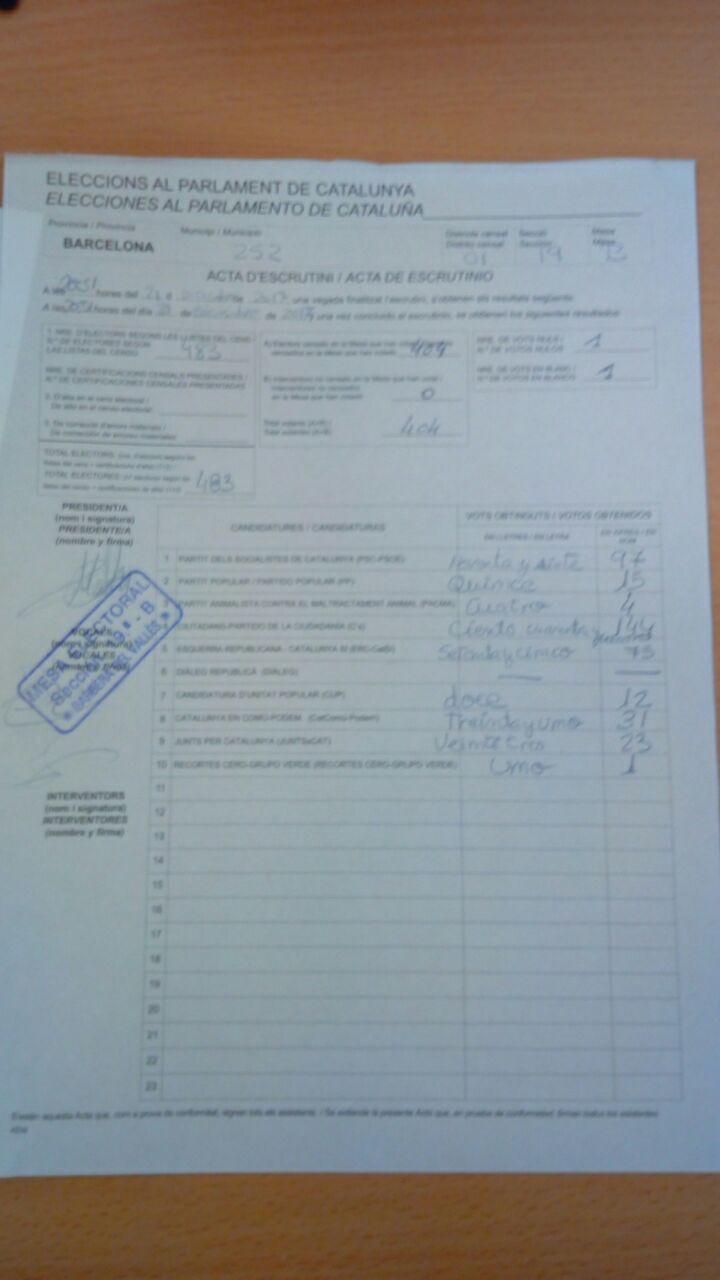 ELECCIONS AL PARLAMENT DE CATALUNYA
ELECCIONES AL PARLAMENTO DE CATALUÑA
Província / Provincia Municipi / Municipio Districte censal Secció Mesa
Distrito censal Sección Mesa
BARCELONA 252 01 19
ACTA D'ESCRUTINI / ACTA DE ESCRUTINIO
A les hores del de 2017 una vegada finalitzat l'escrutini, s'obtenen els resultats següents:
A las hores del día de de 2017, una vez concluido el escrutinio, se obtienen los siguientes resultados:
1. NRE. D'ELECTORS SEGONS LES LLISTES DEL CENS /
N.º DE ELECTORES SEGÚN
LAS LISTAS DEL CENSO 483
NRE. DE CERTIFICACIONS CENSALS PRESENTADES /
N.º DE CERTIFICACIONES CENSALES PRESENTADAS
2. D'alta en el cens electoral /
De alta en el censo electoral:
3. De correcció d'errors materials /
De corrección de errores materiales:
TOTAL ELECTORS:
TOTAL ELECTORES: 483
404
0
Total votants (A+B) /
Total votantes (A+B) 404
NRE. DE VOTS NULS /
N.º DE VOTOS NULOS 1
NRE. DE VOTS EN BLANC /
N.º DE VOTOS EN BLANCO 1
PRESIDENT/A
(nom i signatura)
PRESIDENTE/A
(nombre y firma)
VOCALS
(nom i signatura)
VOCALES
(nombre y firma)
MESA ELECTORAL
SECCIÓ 19ª - B
* BARBERÀ DEL VALLÈS *
INTERVENTORS
(nom i signatura)
INTERVENTORES
(nombre y firma)
CANDIDATURES / CANDIDATURAS VOTS OBTINGUTS / VOTOS OBTENIDOS
EN LLETRES / EN LETRA EN XIFRES / EN
1 PARTIT DELS SOCIALISTES DE CATALUNYA (PSC-PSOE) noventa y siete 97
2 PARTIT POPULAR / PARTIDO POPULAR (PP) Quince 15
3 PARTIT ANIMALISTA CONTRA EL MALTRACTAMENT ANIMAL (PACMA) Cuatro 4
4 CIUTADANS-PARTIDO DE LA CIUDADANÍA (C's) Ciento cuarenta y 144
5 ESQUERRA REPUBLICANA - CATALUNYA SÍ (ERC-CatSí) Setenta y cinco 75
6 DIÀLEG REPUBLICÀ (DIÀLEG)
7 CANDIDATURA D'UNITAT POPULAR (CUP) doce 12
8 CATALUNYA EN COMÚ-PODEM (CatComú-Podem) Treinta y uno 31
9 JUNTS PER CATALUNYA (JUNTSxCAT) Veintitres 23
10 RECORTES CERO-GRUPO VERDE (RECORTES CERO-GRUPO VERDE) Uno 1
11
12
13
14
15
16
17
18
19
20
21
22
23
S'estén aquesta Acta que, com a prova de conformitat, signen tots els assistents. / Se extiende la presente Acta que, en prueba de conformidad, firman todos los asistentes.